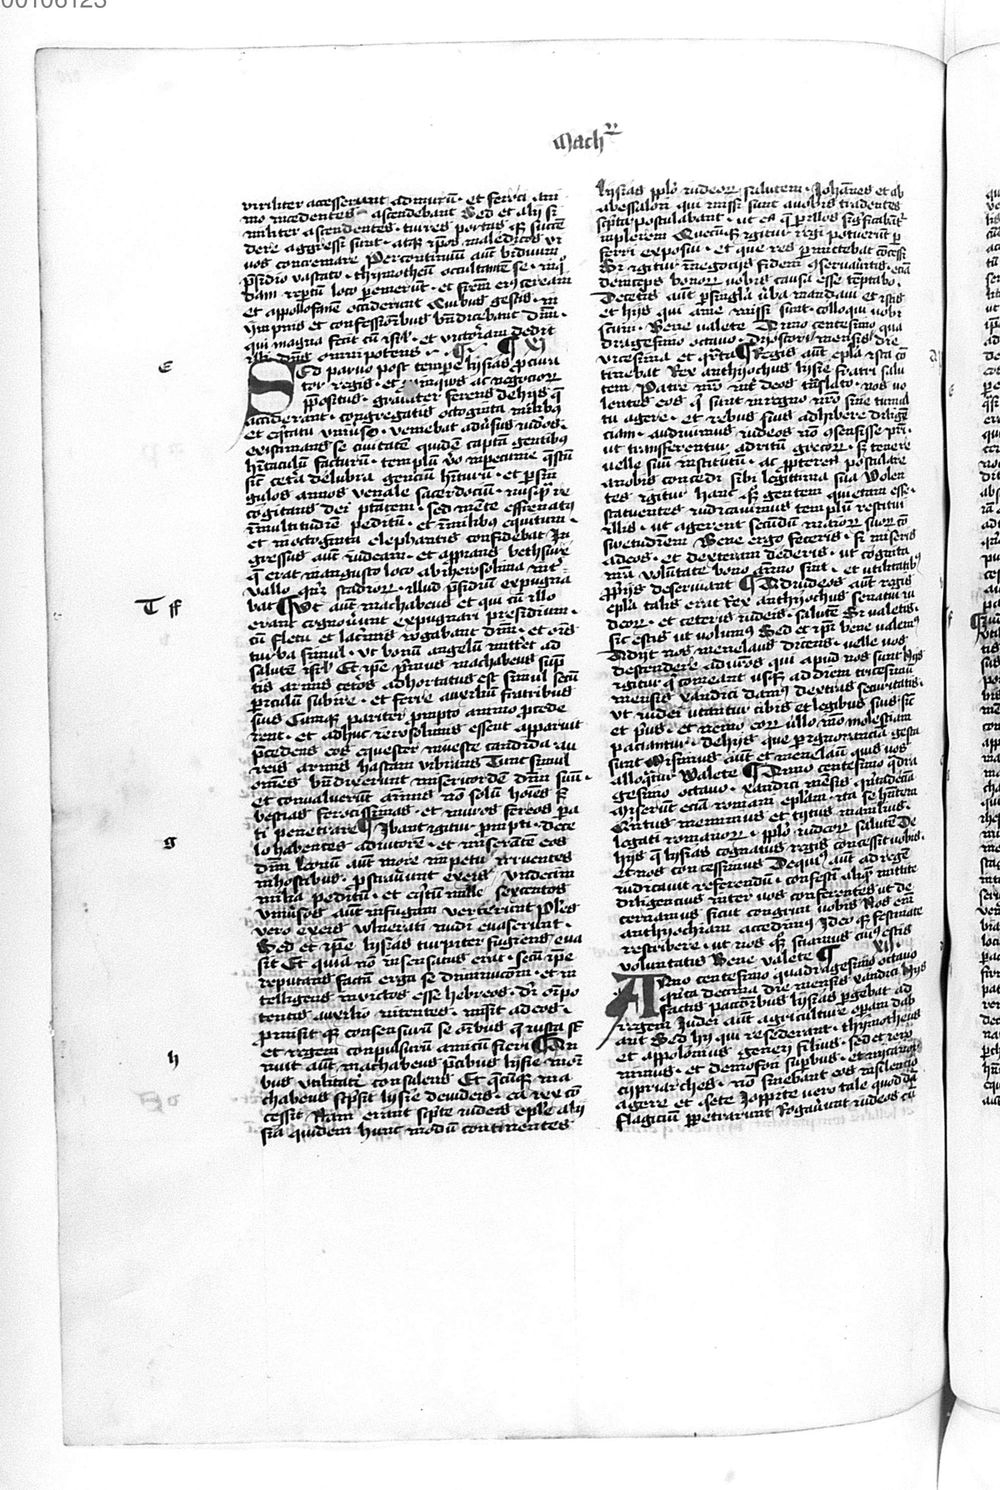 00106123
Mach
viriliter accesserunt ad murū · et feroci ani
mo incedentes ascendebant Sed et alij si
militer ascendentes · turres portas q̄ succē
dere aggressi sunt · atq̄ ip̄os maledicos vi
uos concremare Per continuū aut̄ biduum
p̄sidio vastato · thymotheū occultantē se · in q̄
dam rep̄tū loco peremerūt · et fr̄em eiꝰ ceream
et appollofanē occiderunt Quibus gestis · in
ymp̄nis et confessiōibus bn̄dicebant dn̄m ·
qui magna fecit cū isrl̄ · et victoriam dedit
illis dn̄s omnipotens · XI
Sed paruo post tempe lysias p̄cura
tor regis · et p̄pinquꝰ ac negocioꝝ
p̄positus · grauiter ferens de hijs q̄
acciderant · congregatis octoginta milibꝰ
et eq̄tatu vniuso · veniebat adūsus iudeos ·
existimans se ciuitatē quidē captā gentibꝰ
h̄itaculū facturū · templū v̄o in pecunie q̄stū
sic̄ cet̄a delubra gencium h̄iturū · et p̄ sin
gulos annos venale sacerdociū · nusq̄ re
cogitans dei p̄tatem · sed mēte effrenatꝰ
in multitudīe peditū · et in milibus equitum ·
et in octoginta elephantis confidebat In
gressus aut̄ iudeam · et appians bethsure
q̄ erat in angusto loco ab iherosolima int̄
uallo quīq̄ stadioꝝ · illud p̄sidiū expugna
bat ¶ Vt aut̄ machabeus et qui cū illo
erant cognouūnt expugnari presidium ·
cū fletu et lacrimis rogabant dn̄m · et om̄s
turba simul · vt bonū angelū mitt̄et ad
salutē isrl̄ Et ip̄e p̄mus machabeus sūp
tis armis cet̄os adhortatus est simul secū
p̄iculū subire · et ferre auxiliū fratribus
suis Cumq̄ pariter p̄mpto animo p̄cede
rent · et adhuc ierosolimis essent apparuit
p̄cedens eos equester in veste candida au
reis armis hastam vibrans Tunc simul
om̄es bn̄dixerunt misericordē dn̄m suū ·
et conualuerūt animis nō solū hoīes sꝫ
bestias ferocissimas · et muros ferreos pa
ti penetrare ¶ Ibant igitur p̄mpti · de ce
lo habentes adiutorē · et miserātē eos
dn̄m Leonū aut̄ more impetu irruentes
in hostibus · p̄strauūnt ex eis vndecim
milia peditū · et equitū mille sexcentos
Vniūsos aut̄ in fugam verterunt Plēs
vero ex eis vulnerati nudi euaserunt ·
Sed et ip̄e lysias turpiter fugiens eua
sit Et quia nō insensatus erat · secū ip̄e
reputans factā erga se diminucōm · et in
telligens inuictos esse hebreos · dei om̄ipo
tentis auxilio nitentes · misit ad eos ·
promisit q̄ consensurū se oībus q̄ iusta sūt
et regem compulsurū amicū fieri ¶ An
nuit aut̄ machabeus p̄cibus lysie · in oībꝰ
bus vtilitati consulens Et q̄cūq̄ ma
chabeus scpsit lysie de iudeis · ea rex cō
cessit Nam erant scpte iudeis eple a ly
sia quidem hunc modū continentes
lysias pplo iudeoꝝ salutem · Johānes et ab
abessalon qui missi sunt a uobis tradentes
scpta postulabant · ut ea q̄ p̄ illos significabāt
implerem Quecūq̄ igitur regi potuerūt p̄
ferri exposui · et que res p̄mittebat concessi
Si igitur in negocijs fidem ꝯseruauitis · et a
deinceps bonoꝝ uobis causa esse tēptabo ·
De cetis aut̄ p̄ singla ūba mandaui et istis
et hijs qui a me missi sunt · colloqui uobi
scum · Bene valete Anno centesimo qua
dragesimo octauo · dyoscori mensis die
vicesima et q̄rta ¶ Regis aut̄ epla ista cō
tinebat Rex anthyochus lysie fratri salu
tem Patre nr̄o int̄ deos tn̄slato · nos vo
lentes eos q̄ sunt in regno nr̄o sine tumul
tu agere · et rebus suis adhibere diligē
ciam · audiuimus iudeos nō ꝯsensisse pr̄i ·
ut transferrentur ad ritū grecoꝝ · sꝫ tenere
uelle suū institutū · ac p̄pterea postulare
a nobis concedi sibi legitima sua Volen
tes igitur hanc q̄ gentem quietam esse ·
statuentes iudicauimus templū restitui
illis · ut agerent secūdū maioꝝ suoꝝ cō
suetudīem Bene ergo feceris · si miseris
ad eos · et dexteram dederis · ut cognita
nr̄a volūtate bono aīmo sint · et vtilitatibꝰ
pp̄rijs deseruiant ¶ Ad iudeos aut̄ regis
epla talis erat Rex anthyochus senatui iu
deoꝝ · et ceteris iudeis · salutē Si valetis ·
sic estis ut volumꝰ Sed et ip̄i bene valemꝰ
Adijt nos menelaus dicens · uelle uos
descendere ad vr̄os qui apud nos sunt Hijs
igitur q̄ comeant usq̄ ad diem tricesimū
mensis xandici damꝰ dextras securitatis ·
Vt iudei utantur cibis et legibus suis sic̄
et p̄us · et nemo eoꝝ ullo mō molestiam
paciantur · de hijs que p̄ ignorancia gesta
sunt Misimus aut̄ et menelaū quis uos
alloquetur Valete ¶ Anno centesimo q̄dra
gesimo octauo · xandici mēsis · quītadecīa
Miserūt eciā romani eplam · ita se hn̄tem
Quintus memmius et tytus manilius ·
legati romanoꝝ · pplo iudeoꝝ salutē De
hijs q̄ lysias cognatus regis concessit uobis ·
et nos concessimus De quibꝰ aut̄ ad regē
iudicauit referendū · confestī aliq̄ mittite
diligencius inter uos conferentes ut de
cernamus sicut congruit uobis Nos eīm
anthyochiam accedimꝰ Ideo q̄ festinate
rescribere · ut nos q̄ sciamus cuiꝰ estis
voluntatis Bene valete ¶ XII ·
Anno centesimo quadragesimo octauo
quīta decima die mensis xandici Hijs
factis pactionibus lysias p̄gebat ad
regem Judei aut̄ agriculture operam dab
ant Sed hij qui resederant · thymotheus
et appolonius genei filius · sed et iero
nimus · et demofon superbus · et nicanor
cypriarches · nō sinebant eos in silencio
agere et · sete Joppite uero tale quoddā
flagiciū ppetrarunt Rogauūnt iudeos cū
E
T ff
g
h